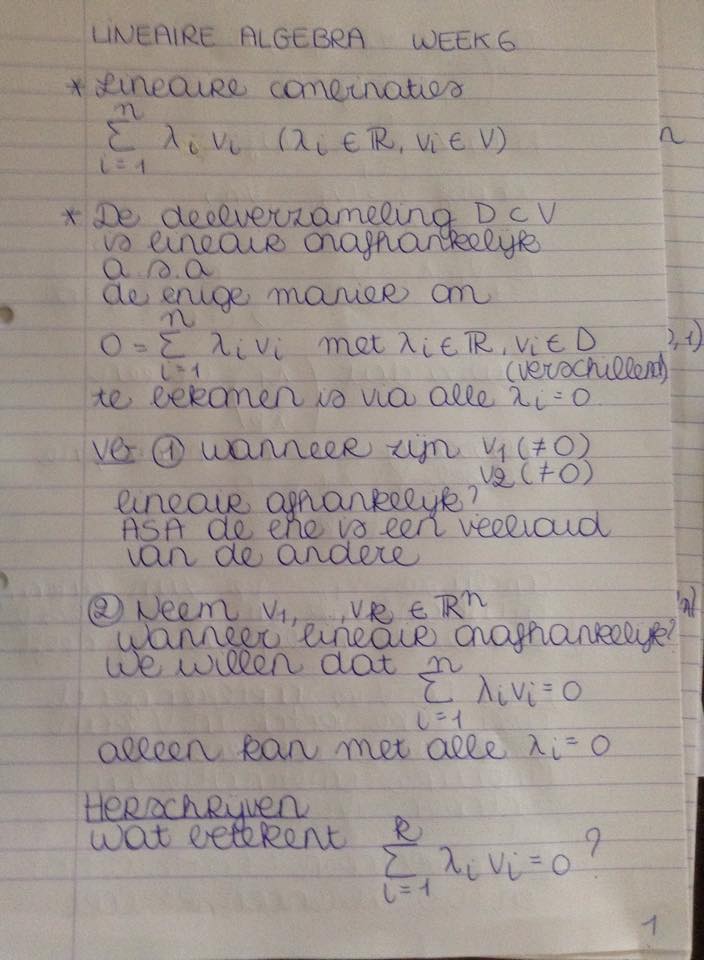 LINEAIRE ALGEBRA WEEK 6
* Lineaire comernaties
n
∑ λi vi (λi ∈ ℝ, vi ∈ V)
i=1
n
* De deelverzameling D ⊂ V
is lineair onafhankelijk
a.s.a
de enige manier om
n
0 = ∑ λi vi met λi ∈ ℝ, vi ∈ D
i=1 (verschillend)
,1)
te bekomen is via alle λi = 0
VB ① wanneer zijn v1 (≠0)
v2 (≠0)
lineair afhankelijk?
ASA de ene is een veelvoud
van de andere
② Neem v1, ..., vk ∈ ℝⁿ
wanneer lineair onafhankelijk?
We willen dat n
∑ λi vi = 0
i=1
alleen kan met alle λi = 0
Herschrijven
wat betekent k
∑ λi vi = 0 ?
i=1
1